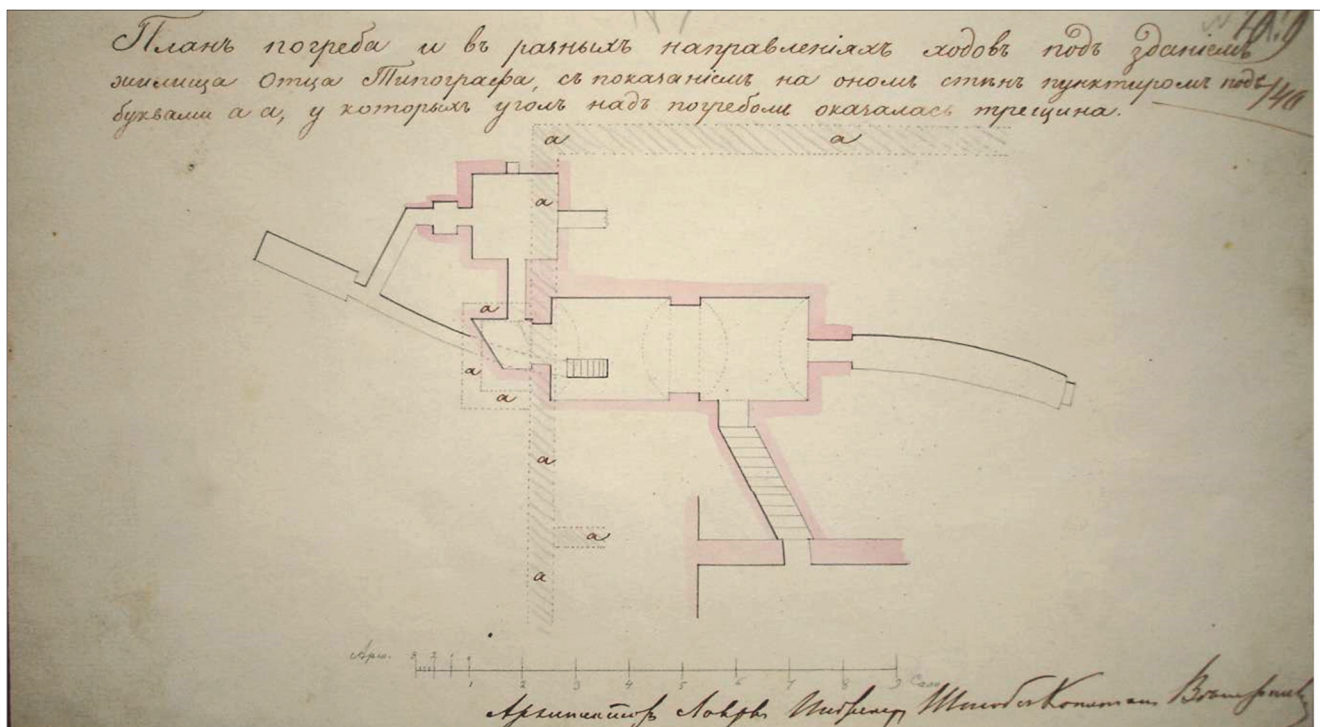 Планъ погреба и въ разныхъ направленіяхъ ходовъ подъ зданіемъ
жилища Отца Типографа, съ показаніемъ на ономъ стѣнъ пунктиромъ подъ
буквами а а, у которыхъ уголъ надъ погребомъ оказалась трещина.
а а
а
а
а
а
а
а
а
Арш. 3 2 1
1 2 3 4 5 6 7 8 9 Саж.
Архитекторъ Инженеръ